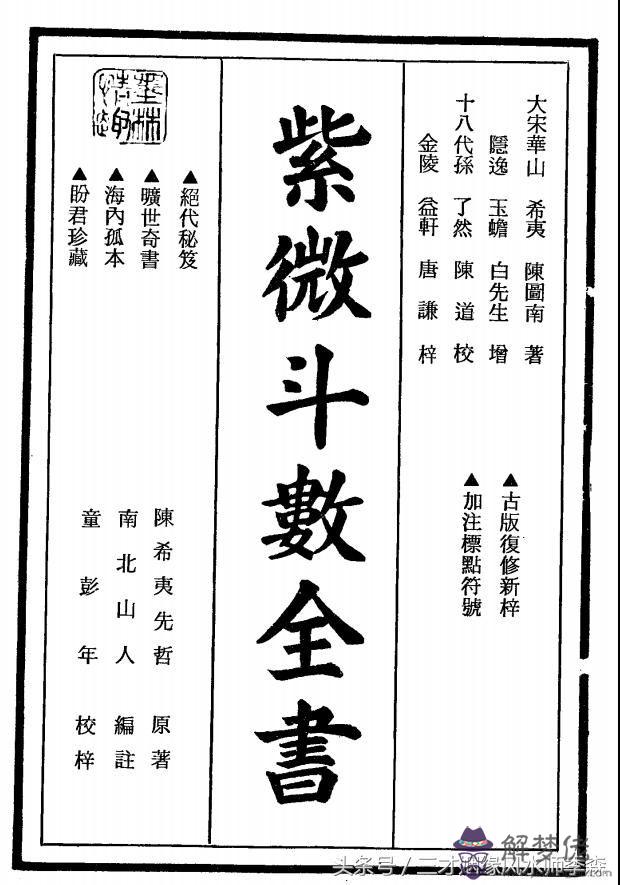 大宋華山 希夷 陳圖南 著
隱逸 玉蟾 白先生 增
十八代孫 了然 陳道 校
金陵 益軒 唐謙 梓
▲古版復修新梓
▲加注標點符號
紫微斗數全書
▲絕代秘笈
▲曠世奇書
▲海內孤本
▲盼君珍藏
陳希夷先哲 原著
南北山人 編註
童彭年 校梓
解梦佬